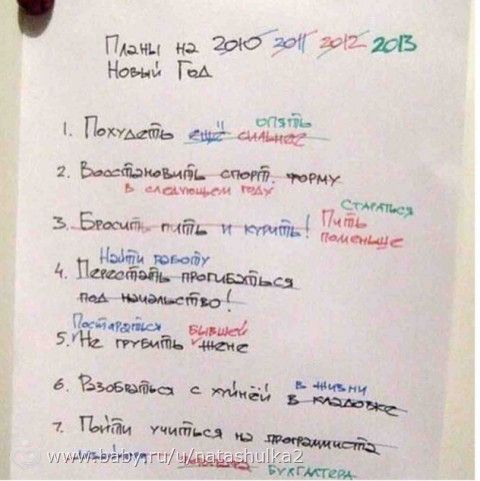 Планы на 2010 2011 2012 2013
Новый Год
опять
1. Похудеть ещё сильнее
2. Восстановить спорт. форму
в следующем году
стараться
3. Бросить пить и курить! Пить
поменьше
Найти работу
4. Перестать прогибаться
под начальство!
Постараться бывшей
5. Не грубить жене
6. Разобраться с хуйнёй в жизни
в кладовке
7. Пойти учиться на программиста
бухгалтера
www.baby.ru/u/natashulka2